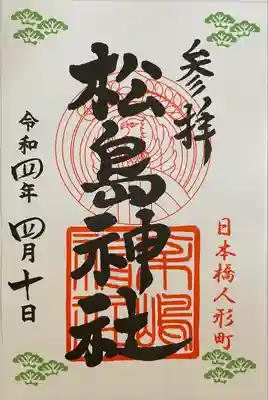 参拝
松島神社
日本橋人形町
令和四年 四月十日